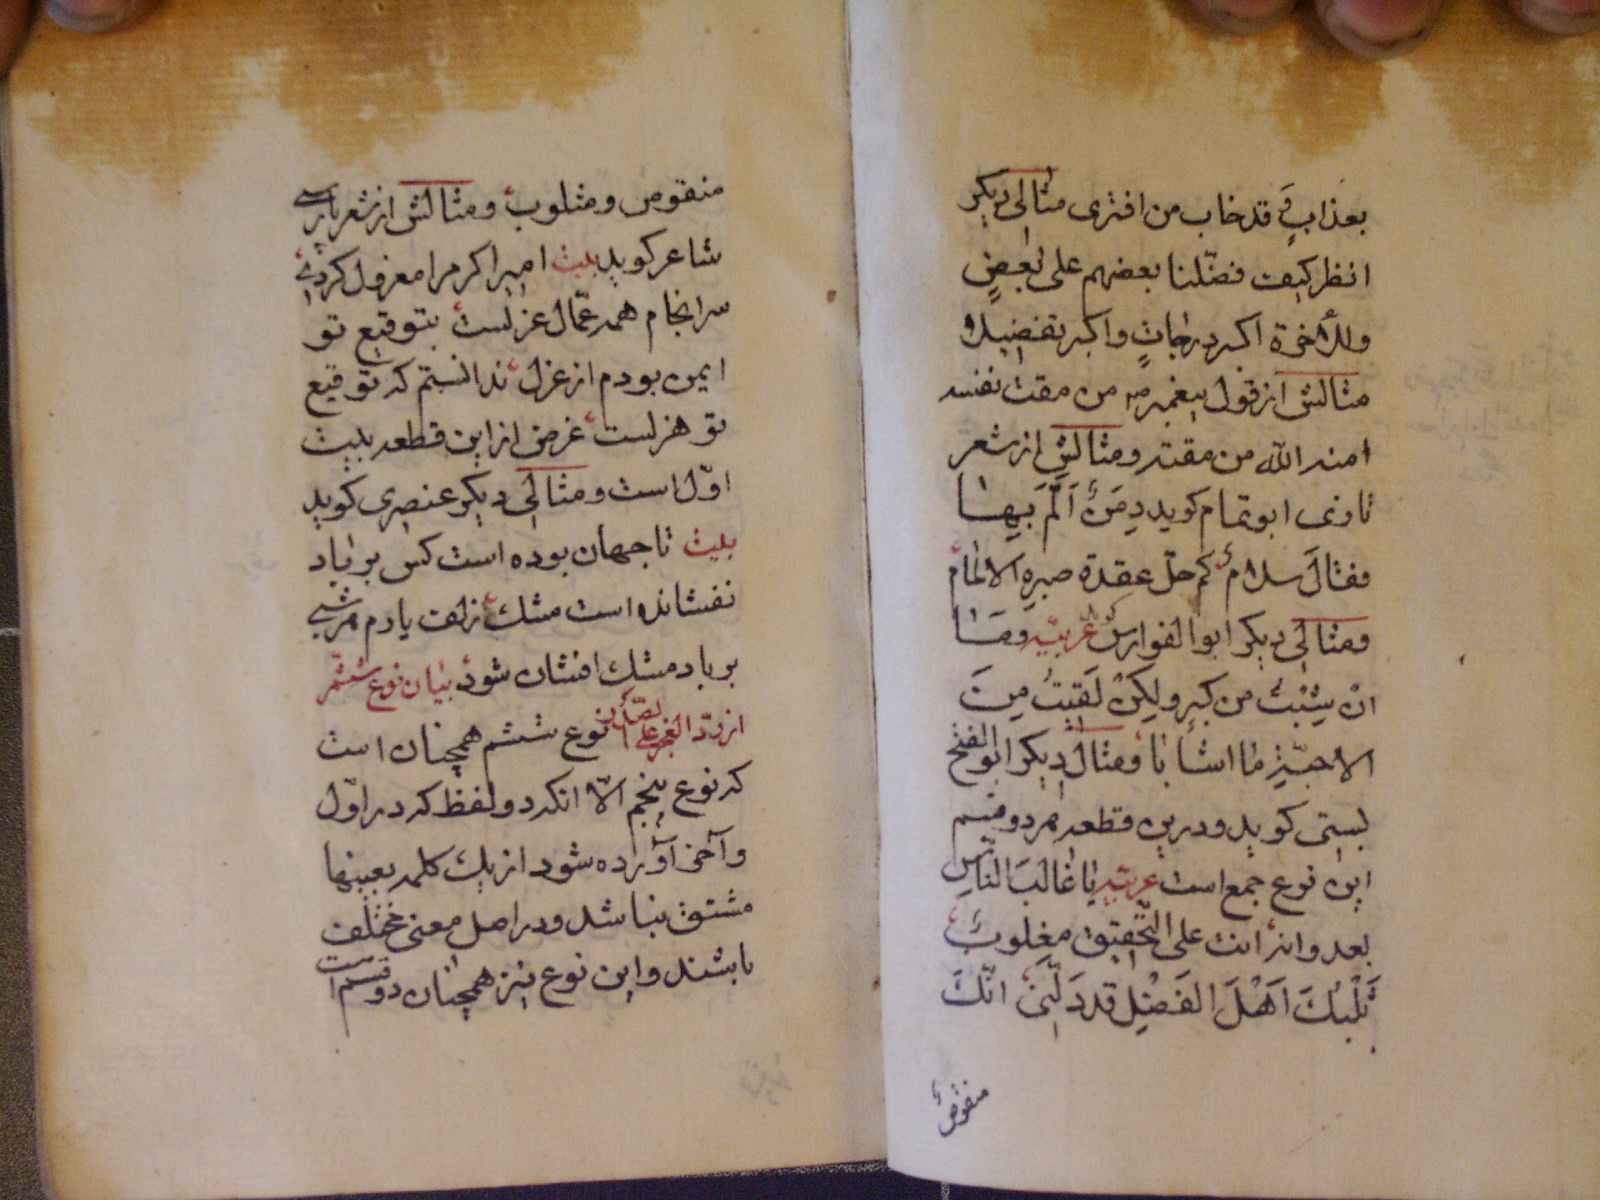 بعذابٍ و قد خاب من افتری مثالی دیکر
انظر کیف فضّلنا بعضهم علی بعضٍ
وللآخرة اکبر درجاتٍ واکبر تفضیلا
مثالش از قول پیغمبر من مقت نفسه
امنه الله من مقته ومثالش از شعر
تازی ابو تمام کوید دِمَنٌ اَلَمَّ بِها
فقالَ سلامٌ کم حلّ عقدة صبرهِ الالمام
ومثالی دیکر ابوالفوارس کوید عربیّه وما
انْ شِبْتُ من کبرٍ ولکنْ لَقیتُ مِنَ
الاحبّةِ ما اشابا ومثال دیکر ابوالفتح
بستی کوید ودرین قطعه هر دو قسم
این نوع جمع است عربیّه یا غالبَ النّاسِ
بعدوانه انت علی التّحقیق مغلوبٌ
ثَلْبُکَ اَهْلَ الفَضْلِ قد دَلّنی انّکَ
منقوصٌ
منقوص ومثلوب ومثالش از شعر پارسی
شاعر کوید بیت امیرا کر مرا معزول کردی
سرانجام همه عمّال عزلست بتوقیع تو
ایمن بودم از عزل ندانستم که توقیع
تو هزلست غرض از این قطعه بیت
اوّل است ومثالی دیکر عنصری کوید
بیت تا جهان بوده است کس بر باد
نفشانده است مشک زلف یارم هر شبی
بر باد مشک افشان شود بیان نوع ششم
از ردّ العجز علی الصّدر نوع ششم همچنان است
که نوع پنجم الّا آنکه دو لفظ که در اوّل
وآخر آورده شود از یک کلمه بعینها
مشتق نباشد ودر اصل معنی مختلف
باشند واین نوع نیز همچنان دو قسم است